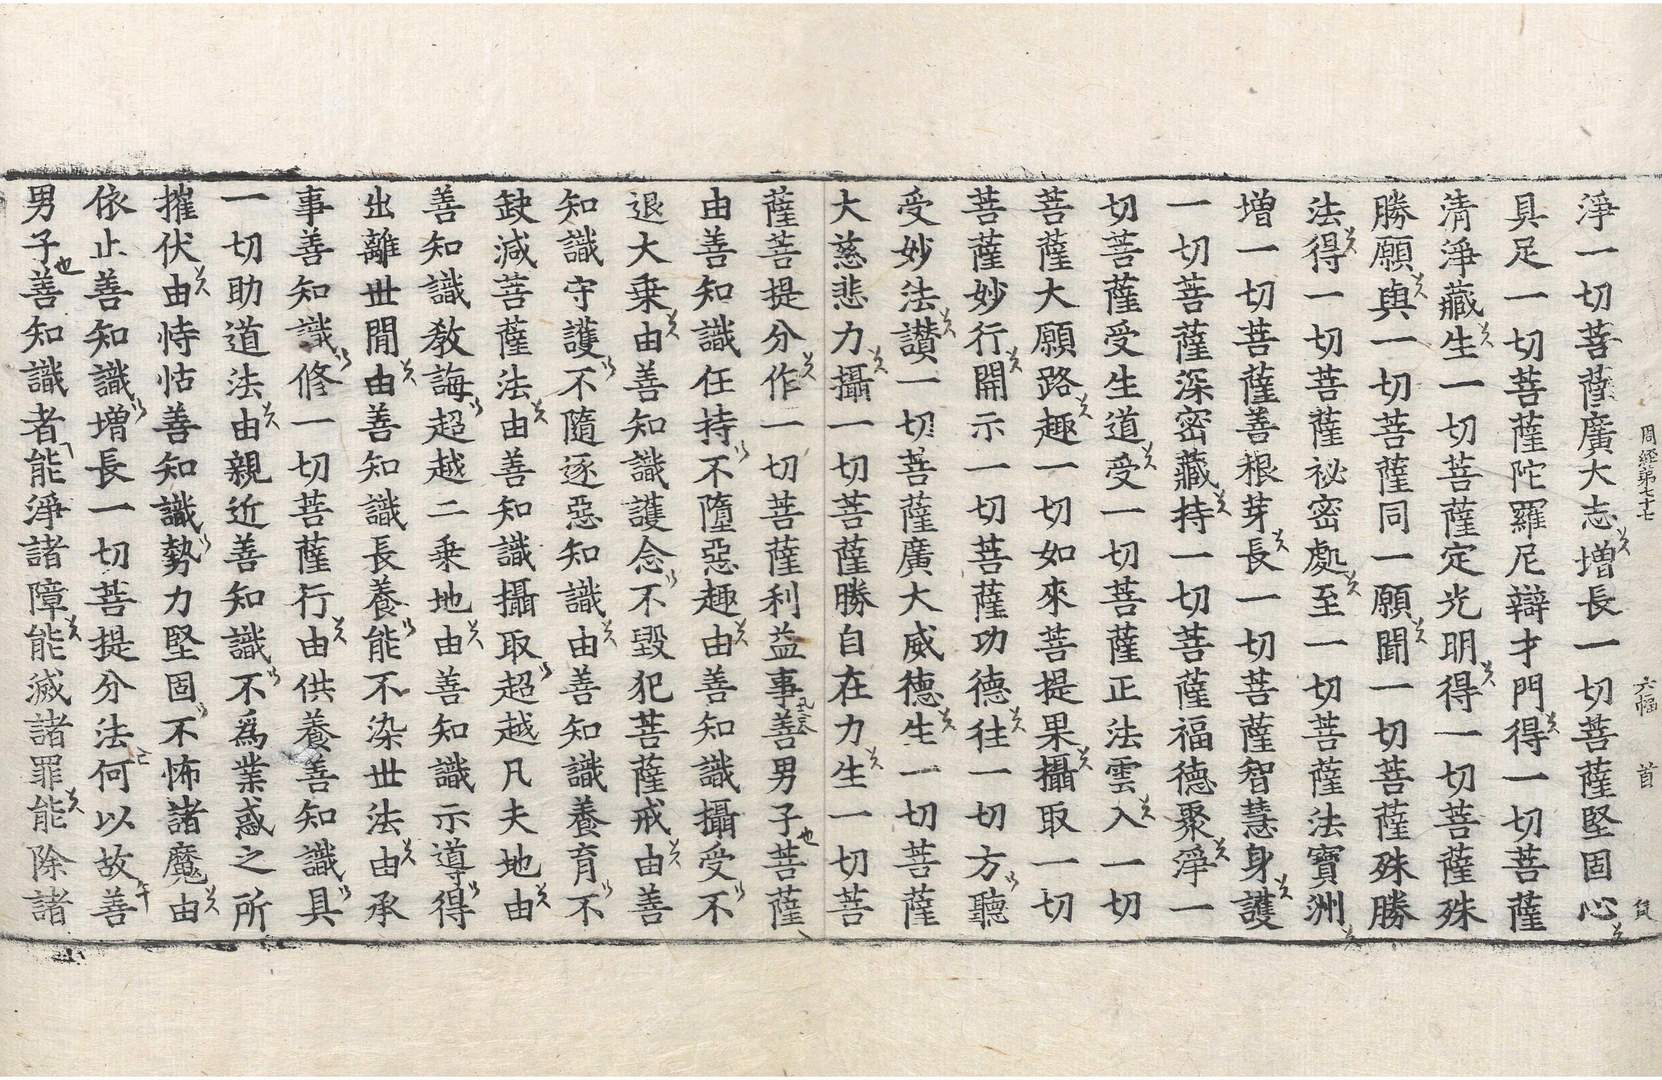 周経第七十七 六幅 首
淨一切菩薩廣大志增長一切菩薩堅固心
具足一切菩薩陀羅尼辯才門得一切菩薩
清淨藏生一切菩薩定光明得一切菩薩殊
勝願與一切菩薩同一願聞一切菩薩殊勝
法得一切菩薩祕密處至一切菩薩法寶洲
增一切菩薩善根芽長一切菩薩智慧身護
一切菩薩深密藏持一切菩薩福德聚淨一
切菩薩受生道受一切菩薩正法雲入一切
菩薩大願路趣一切如來菩提果攝取一切
菩薩妙行開示一切菩薩功德往一切方聽
受妙法讚一切菩薩廣大威德生一切菩薩
大慈悲力攝一切菩薩勝自在力生一切菩
薩菩提分作一切菩薩利益事善男子菩薩
由善知識任持不墮惡趣由善知識攝受不
退大乘由善知識護念不毀犯菩薩戒由善
知識守護不隨逐惡知識由善知識養育不
缺減菩薩法由善知識攝取超越凡夫地由
善知識敎誨超越二乘地由善知識示導得
出離世間由善知識長養能不染世法由承
事善知識修一切菩薩行由供養善知識具
一切助道法由親近善知識不爲業惑之所
摧伏由恃怙善知識勢力堅固不怖諸魔由
依止善知識增長一切菩提分法何以故善
男子善知識者能淨諸障能滅諸罪能除諸